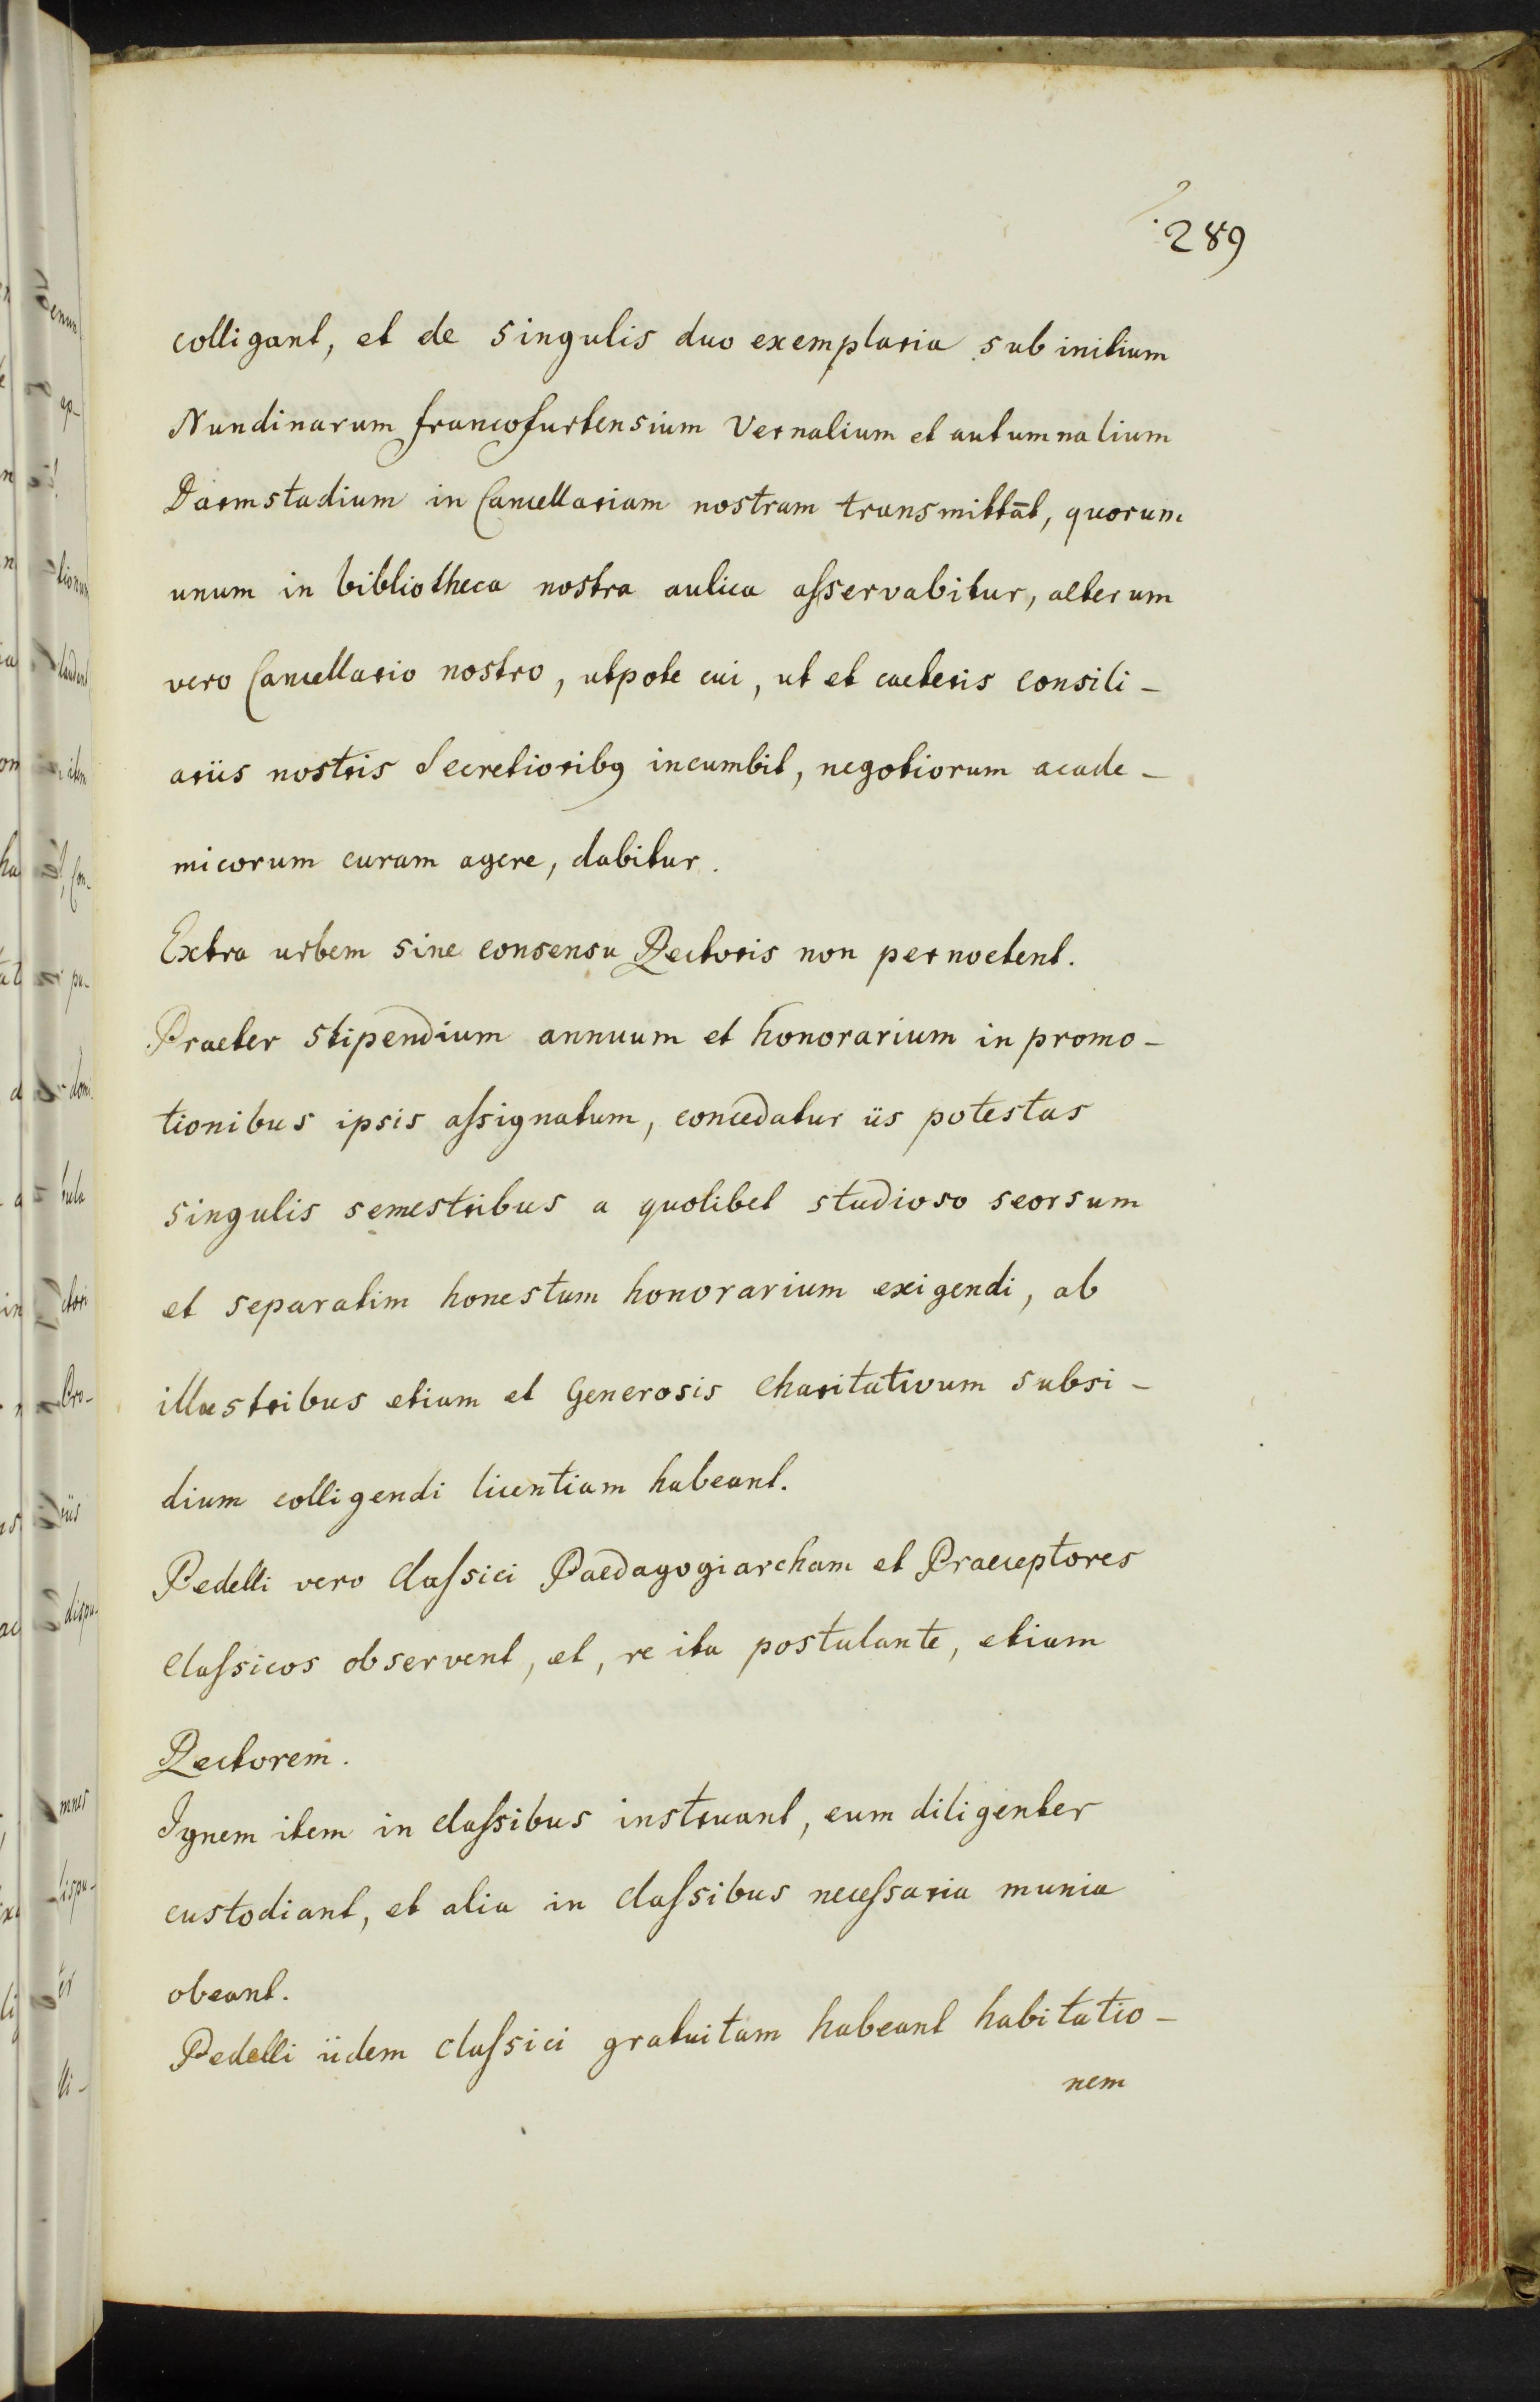 289
colligant, et de singulis duo exemplaria sub initium
Nundinarum francofurtensium Vernalium et autumnalium
Darmstadium in Cancellariam nostram transmittāt, quorum
unum in bibliotheca nostra aulica aſservabitur, alterum
vero Cancellario nostro, utpote cui, ut et caeteris consili-
ariis nostris Secretioribꝰ incumbit, negotiorum acade-
micorum curam agere, dabitur.
Extra urbem sine consensu Rectoris non pernoctent.
Praeter stipendium annuum et honorarium in promo-
tionibus ipsis aſsignatum, concedatur iis potestas
singulis semestribus a quolibet studioso seorsum
et separatim honestum honorarium exigendi, ab
illustribus etiam et Generosis charitativum subsi-
dium colligendi licentiam habeant.
Pedelli vero claſsici Paedagogiarcham et Praeceptores
claſsicos observent, et, re ita postulante, etiam
Rectorem.
Ignem item in claſsibus instruant, eum diligenter
custodiant, et alia in claſsibus neceſsaria munia
obeant.
Pedelli iidem claſsici gratuitam habeant habitatio-
nem